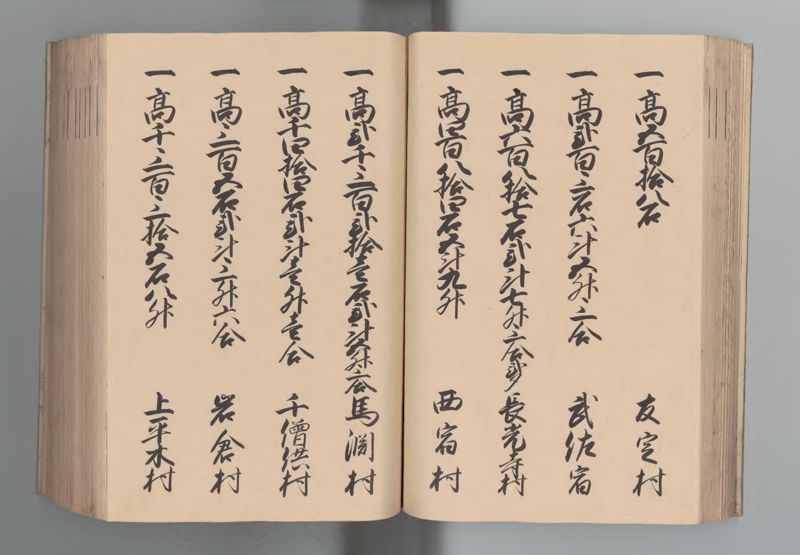 一高五百拾八石 友定村
一高弐百三石六斗五升三合 武佐宿
一高六百八拾七石弐斗七升三合弐夕 長光寺村
一高四百八拾四石五斗九升 西宿村
一高弐千三百弐拾壱石弐斗五升三合 馬渕村
一高千四拾四石弐斗壱升壱合 千僧供村
一高三百五石弐斗三升六合 岩倉村
一高千三百三拾五石八升 上平木村